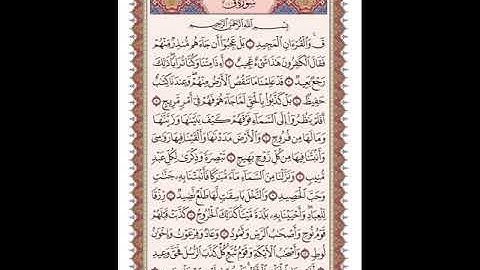 سُورَةُ قٓ
بِسْمِ ٱللَّهِ ٱلرَّحْمَٰنِ ٱلرَّحِيمِ
قٓۚ وَٱلْقُرْءَانِ ٱلْمَجِيدِ ۝ بَلْ عَجِبُوٓا۟ أَن جَآءَهُم مُّنذِرٌ مِّنْهُمْ
فَقَالَ ٱلْكَٰفِرُونَ هَٰذَا شَىْءٌ عَجِيبٌ ۝ أَءِذَا مِتْنَا وَكُنَّا تُرَابًاۖ ذَٰلِكَ
رَجْعٌۢ بَعِيدٌ ۝ قَدْ عَلِمْنَا مَا تَنقُصُ ٱلْأَرْضُ مِنْهُمْۖ وَعِندَنَا كِتَٰبٌ
حَفِيظٌۢ ۝ بَلْ كَذَّبُوا۟ بِٱلْحَقِّ لَمَّا جَآءَهُمْ فَهُمْ فِىٓ أَمْرٍ مَّرِيجٍ ۝
أَفَلَمْ يَنظُرُوٓا۟ إِلَى ٱلسَّمَآءِ فَوْقَهُمْ كَيْفَ بَنَيْنَٰهَا وَزَيَّنَّٰهَا
وَمَا لَهَا مِن فُرُوجٍ ۝ وَٱلْأَرْضَ مَدَدْنَٰهَا وَأَلْقَيْنَا فِيهَا رَوَٰسِىَ
وَأَنۢبَتْنَا فِيهَا مِن كُلِّ زَوْجٍۭ بَهِيجٍ ۝ تَبْصِرَةً وَذِكْرَىٰ لِكُلِّ عَبْدٍ
مُّنِيبٍ ۝ وَنَزَّلْنَا مِنَ ٱلسَّمَآءِ مَآءً مُّبَٰرَكًا فَأَنۢبَتْنَا بِهِۦ جَنَّٰتٍ
وَحَبَّ ٱلْحَصِيدِ ۝ وَٱلنَّخْلَ بَاسِقَٰتٍ لَّهَا طَلْعٌ نَّضِيدٌ ۝ رِّزْقًا
لِّلْعِبَادِۖ وَأَحْيَيْنَا بِهِۦ بَلْدَةً مَّيْتًاۚ كَذَٰلِكَ ٱلْخُرُوجُ ۝ كَذَّبَتْ قَبْلَهُمْ
قَوْمُ نُوحٍ وَأَصْحَٰبُ ٱلرَّسِّ وَثَمُودُ ۝ وَعَادٌ وَفِرْعَوْنُ وَإِخْوَٰنُ
لُوطٍ ۝ وَأَصْحَٰبُ ٱلْأَيْكَةِ وَقَوْمُ تُبَّعٍۚ كُلٌّ كَذَّبَ ٱلرُّسُلَ فَحَقَّ وَعِيدِ